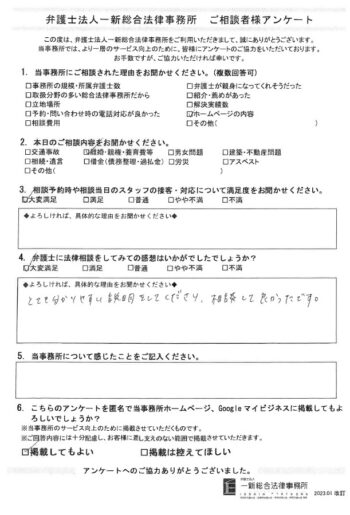 弁護士法人一新総合法律事務所　ご相談者様アンケート
この度は、弁護士法人一新総合法律事務所をご利用いただきまして、誠にありがとうございます。
当事務所では、より一層のサービス向上のために、皆様にアンケートのご協力をいただいております。
お手数ですが、ご協力いただければ幸いです。
1．当事務所にご相談された理由をお聞かせください。（複数回答可）
□事務所の規模・所属弁護士数　□弁護士が親身になってくれそうだった
□取扱分野の多い総合法律事務所だから　□紹介・薦めがあった
□立地場所　□解決実績数
□予約・問い合わせ時の電話対応が良かった　☑ホームページの内容
□相談費用　□その他（　）
2．本日のご相談内容をお聞かせください。
□交通事故　☑離婚・親権・養育費等　□男女問題　□建築・不動産問題
□相続・遺言　□借金（債務整理・過払金）□労災　□アスベスト
□その他（　）
3．相談予約時や相談当日のスタッフの接客・対応について満足度をお聞かせください。
☑大変満足　□満足　□普通　□やや不満　□不満
◆よろしければ、具体的な理由をお聞かせください◆
4．弁護士に法律相談をしてみての感想はいかがでしたでしょうか？
☑大変満足　□満足　□普通　□やや不満　□不満
◆よろしければ、具体的な理由をお聞かせください◆
とても分かりやすい説明をしてくださり、相談して良かったです。
5．当事務所について感じたことをご記入ください。
6．こちらのアンケートを匿名で当事務所ホームページ、Googleマイビジネスに掲載してもよ
ろしいでしょうか？
※当事務所のサービス向上のために掲載させていただくものです。
※ご回答内容には十分配慮し、お客様に差し支えのない範囲で掲載させていただきます。
☑掲載してもよい　□掲載は控えてほしい
アンケートへのご協力ありがとうございました。
弁護士法人
一新総合法律事務所
2023.01 改訂